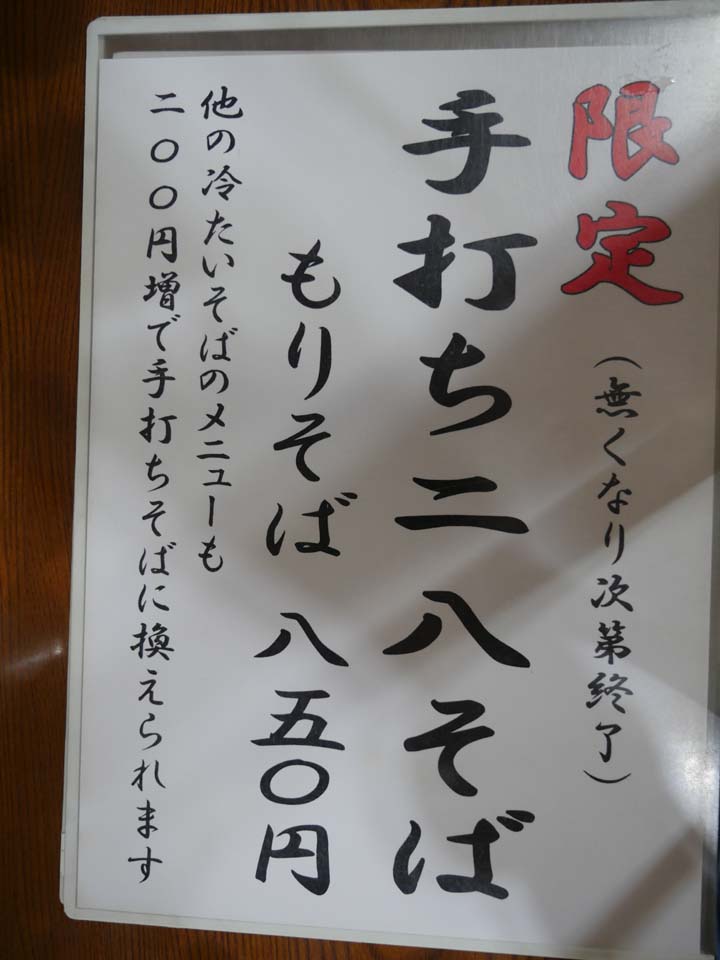 限定（無くなり次第終了）
手打ち二八そば
もりそば 八五〇円
他の冷たいそばのメニューも
二〇〇円増で手打ちそばに換えられます